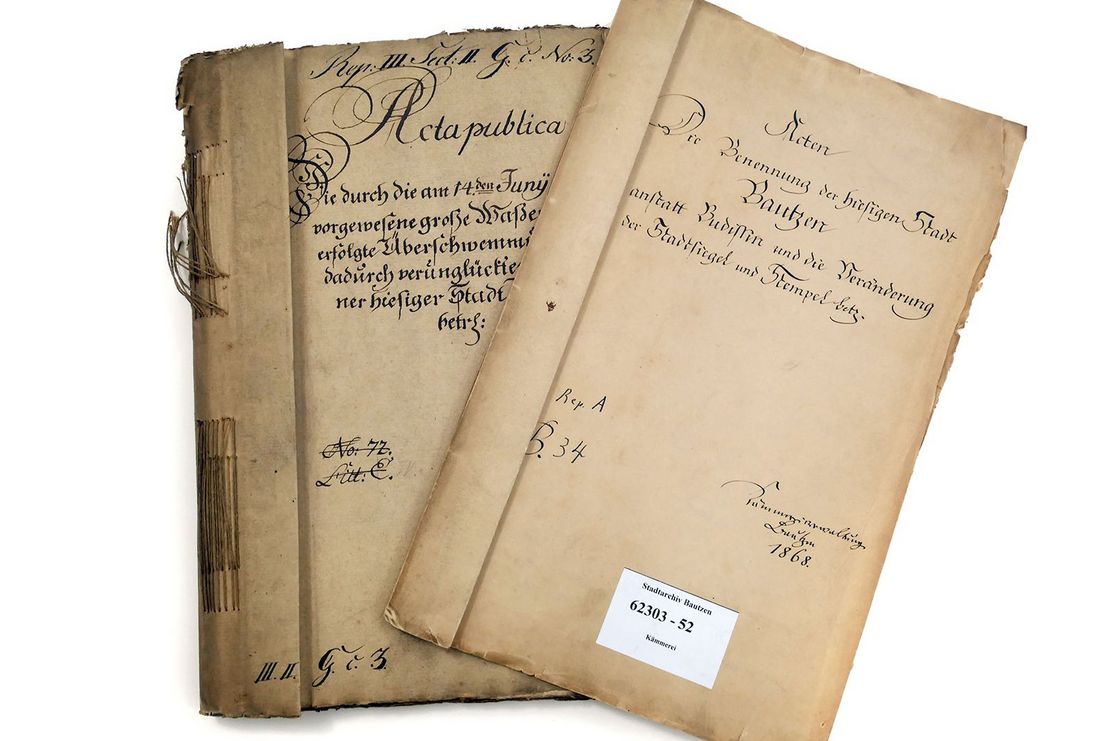 Rep: III Sect: II. G. c. No: 3.
Acta publica
Die durch die am 14. den Junÿ
vorgewesene große Waßer
erfolgte Überschwemmu
dadurch verunglückte
ner hiesiger Stadt
betrf:
No: 72.
Litt: C.
III. II. G. c. 3.
Acten
Die Benennung der hiesigen Stadt
Bautzen
anstatt Budissin und die Veränderung
der Stadtsiegel und Stempel betr.
Rep. A
B. 34
Bautzen
1868.
Stadtarchiv Bautzen
62303 - 52
Kämmerei